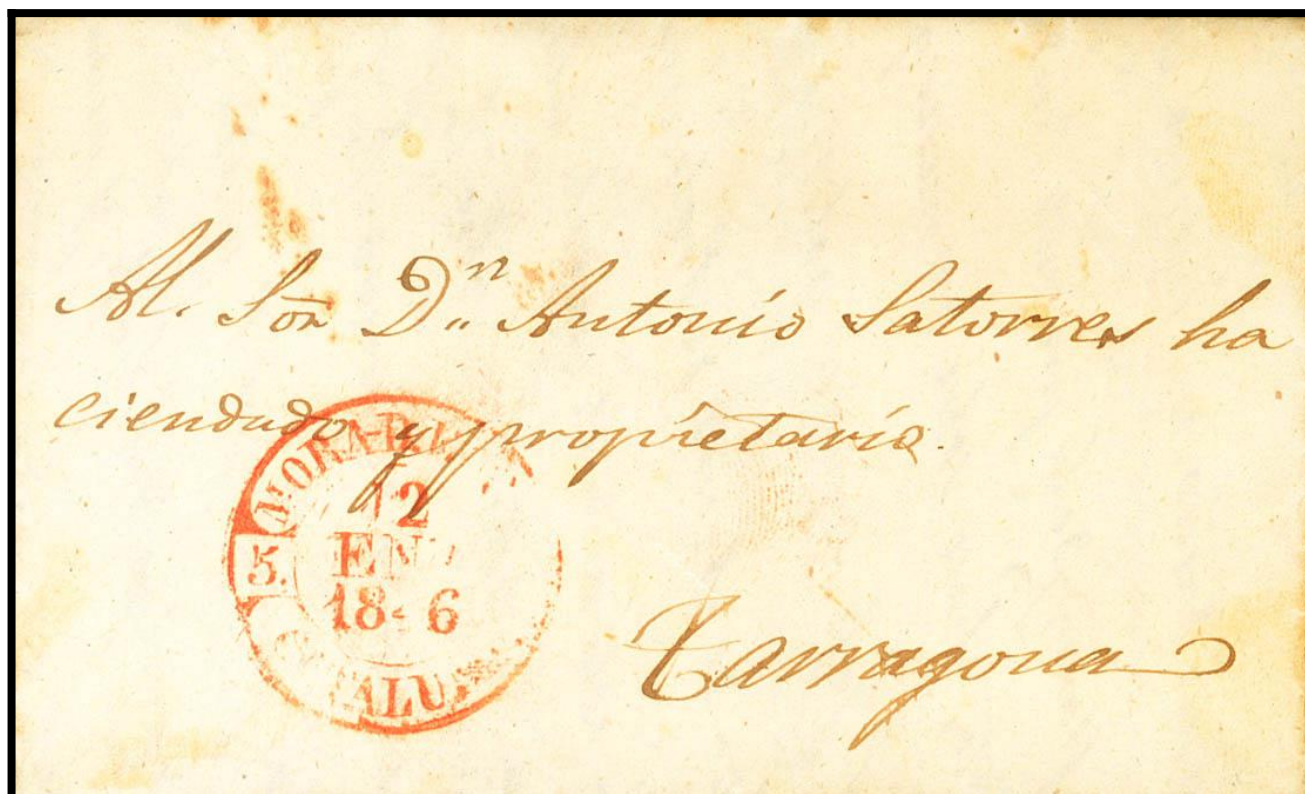 Al. Sor Dn Antonio Satorres ha
ciendado y propietario.
12
ENE
5.
Tarragona